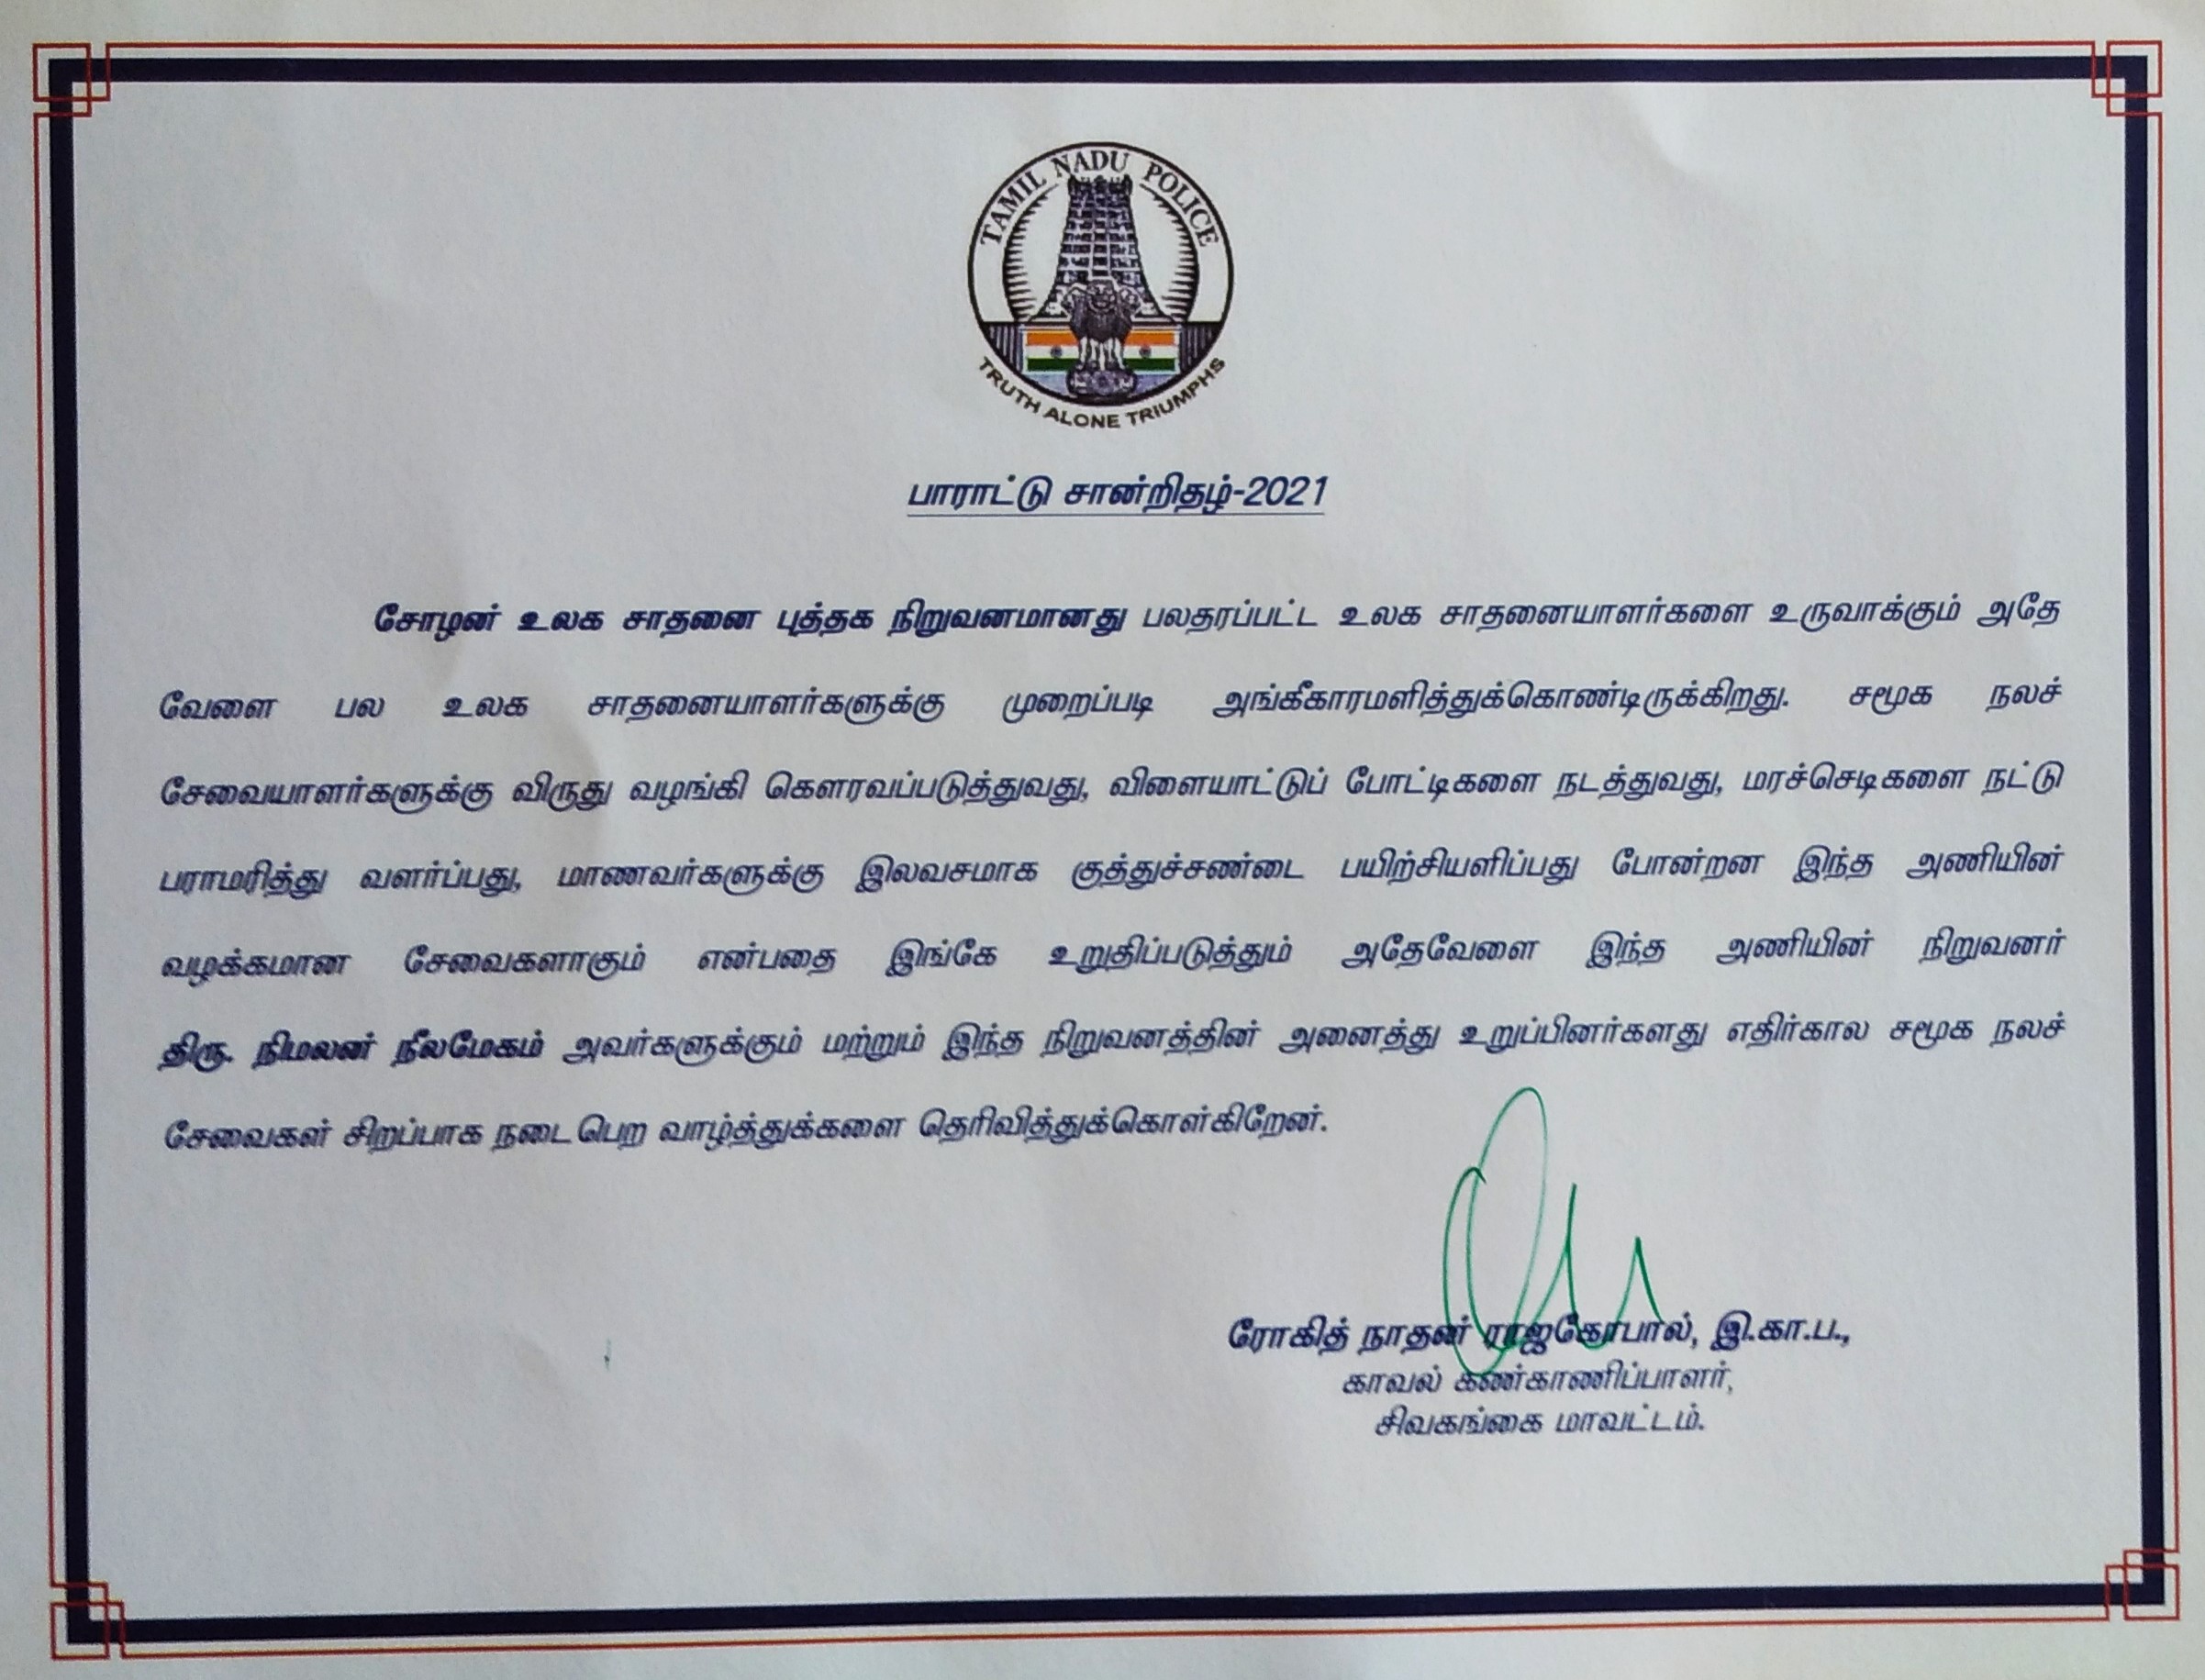 TAMIL NADU POLICE
TRUTH ALONE TRIUMPHS
பாராட்டு சான்றிதழ்-2021
சோழன் உலக சாதனை புத்தக நிறுவனமானது பலதரப்பட்ட உலக சாதனையாளர்களை உருவாக்கும் அதே
வேளை பல உலக சாதனையாளர்களுக்கு முறைப்படி அங்கீகாரமளித்துக்கொண்டிருக்கிறது. சமூக நலச்
சேவையாளர்களுக்கு விருது வழங்கி கௌரவப்படுத்துவது, விளையாட்டுப் போட்டிகளை நடத்துவது, மரச்செடிகளை நட்டு
பராமரித்து வளர்ப்பது, மாணவர்களுக்கு இலவசமாக குத்துச்சண்டை பயிற்சியளிப்பது போன்றன இந்த அணியின்
வழக்கமான சேவைகளாகும் என்பதை இங்கே உறுதிப்படுத்தும் அதேவேளை இந்த அணியின் நிறுவனர்
திரு. நிமலன் நீலமேகம் அவர்களுக்கும் மற்றும் இந்த நிறுவனத்தின் அனைத்து உறுப்பினர்களது எதிர்கால சமூக நலச்
சேவைகள் சிறப்பாக நடைபெற வாழ்த்துக்களை தெரிவித்துக்கொள்கிறேன்.
ரோகித் நாதன் ராஜகோபால், இ.கா.ப.,
காவல் கண்காணிப்பாளர்,
சிவகங்கை மாவட்டம்.